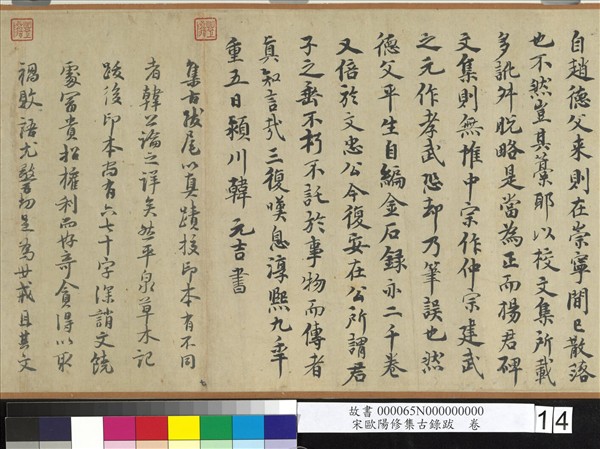 自趙德父来則在崇寧間已散落
也不然豈其藁耶以校文集所載
多訛舛脫略是當為正而楊君碑
文集則無惟中宗作仲宗建武
之元作孝武恐却乃筆誤也然
德父平生自編金石録亦二千卷
又倍於文忠公今復安在公所謂君
子之垂不朽不託於事物而傳者
真知言哉三復嘆息淳熙九年
重五日潁川韓元吉書
集古跋尾以真蹟校印本有不同
者韓公論之詳矣然平泉草木記
跋後印本尚有六七十字深誚文饒
處冨貴招權利而好奇貪得以取
禍敗語尤警切足為世戒且其文
故書 000065N000000000
宋歐陽修集古錄跋 卷
14